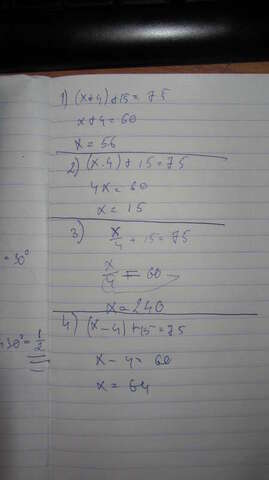 1) (x+4)+15=75
x+4=60
x=56
2) (x·4)+15=75
4x=60
x=15
3) x/4 + 15=75
x/4 = 60
x=240
4) (x-4)+15=75
x-4=60
x=64
=30°
30°=1/2